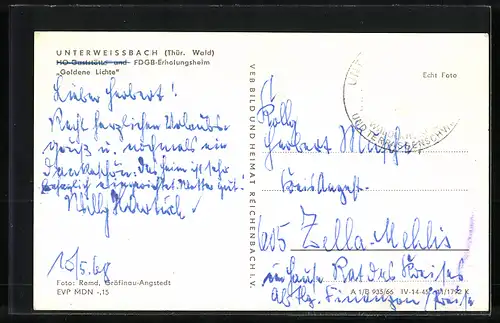 UNTERWEISSBACH (Thür. Wald)
HO-Gaststätte und FDGB-Erholungsheim
„Goldene Lichte"
Lieber Herbert!
Recht herzlichen Urlaubs-
gruß u. nochmals ein
Dankeschön. Das Heim ist sehr
herzlich eingerichtet. Wetter gut!
Willy
10/5.68
Foto: Remd, Gräfinau-Angstedt
EVP MDN -,15
VEB BILD UND HEIMAT REICHENBACH I. V.
Echt Foto
Herbert
605 Zella-Mehlis
im Hause Rat des Kreises
Abtlg. Finanzen
A 1/B 935/66 IV-14-45